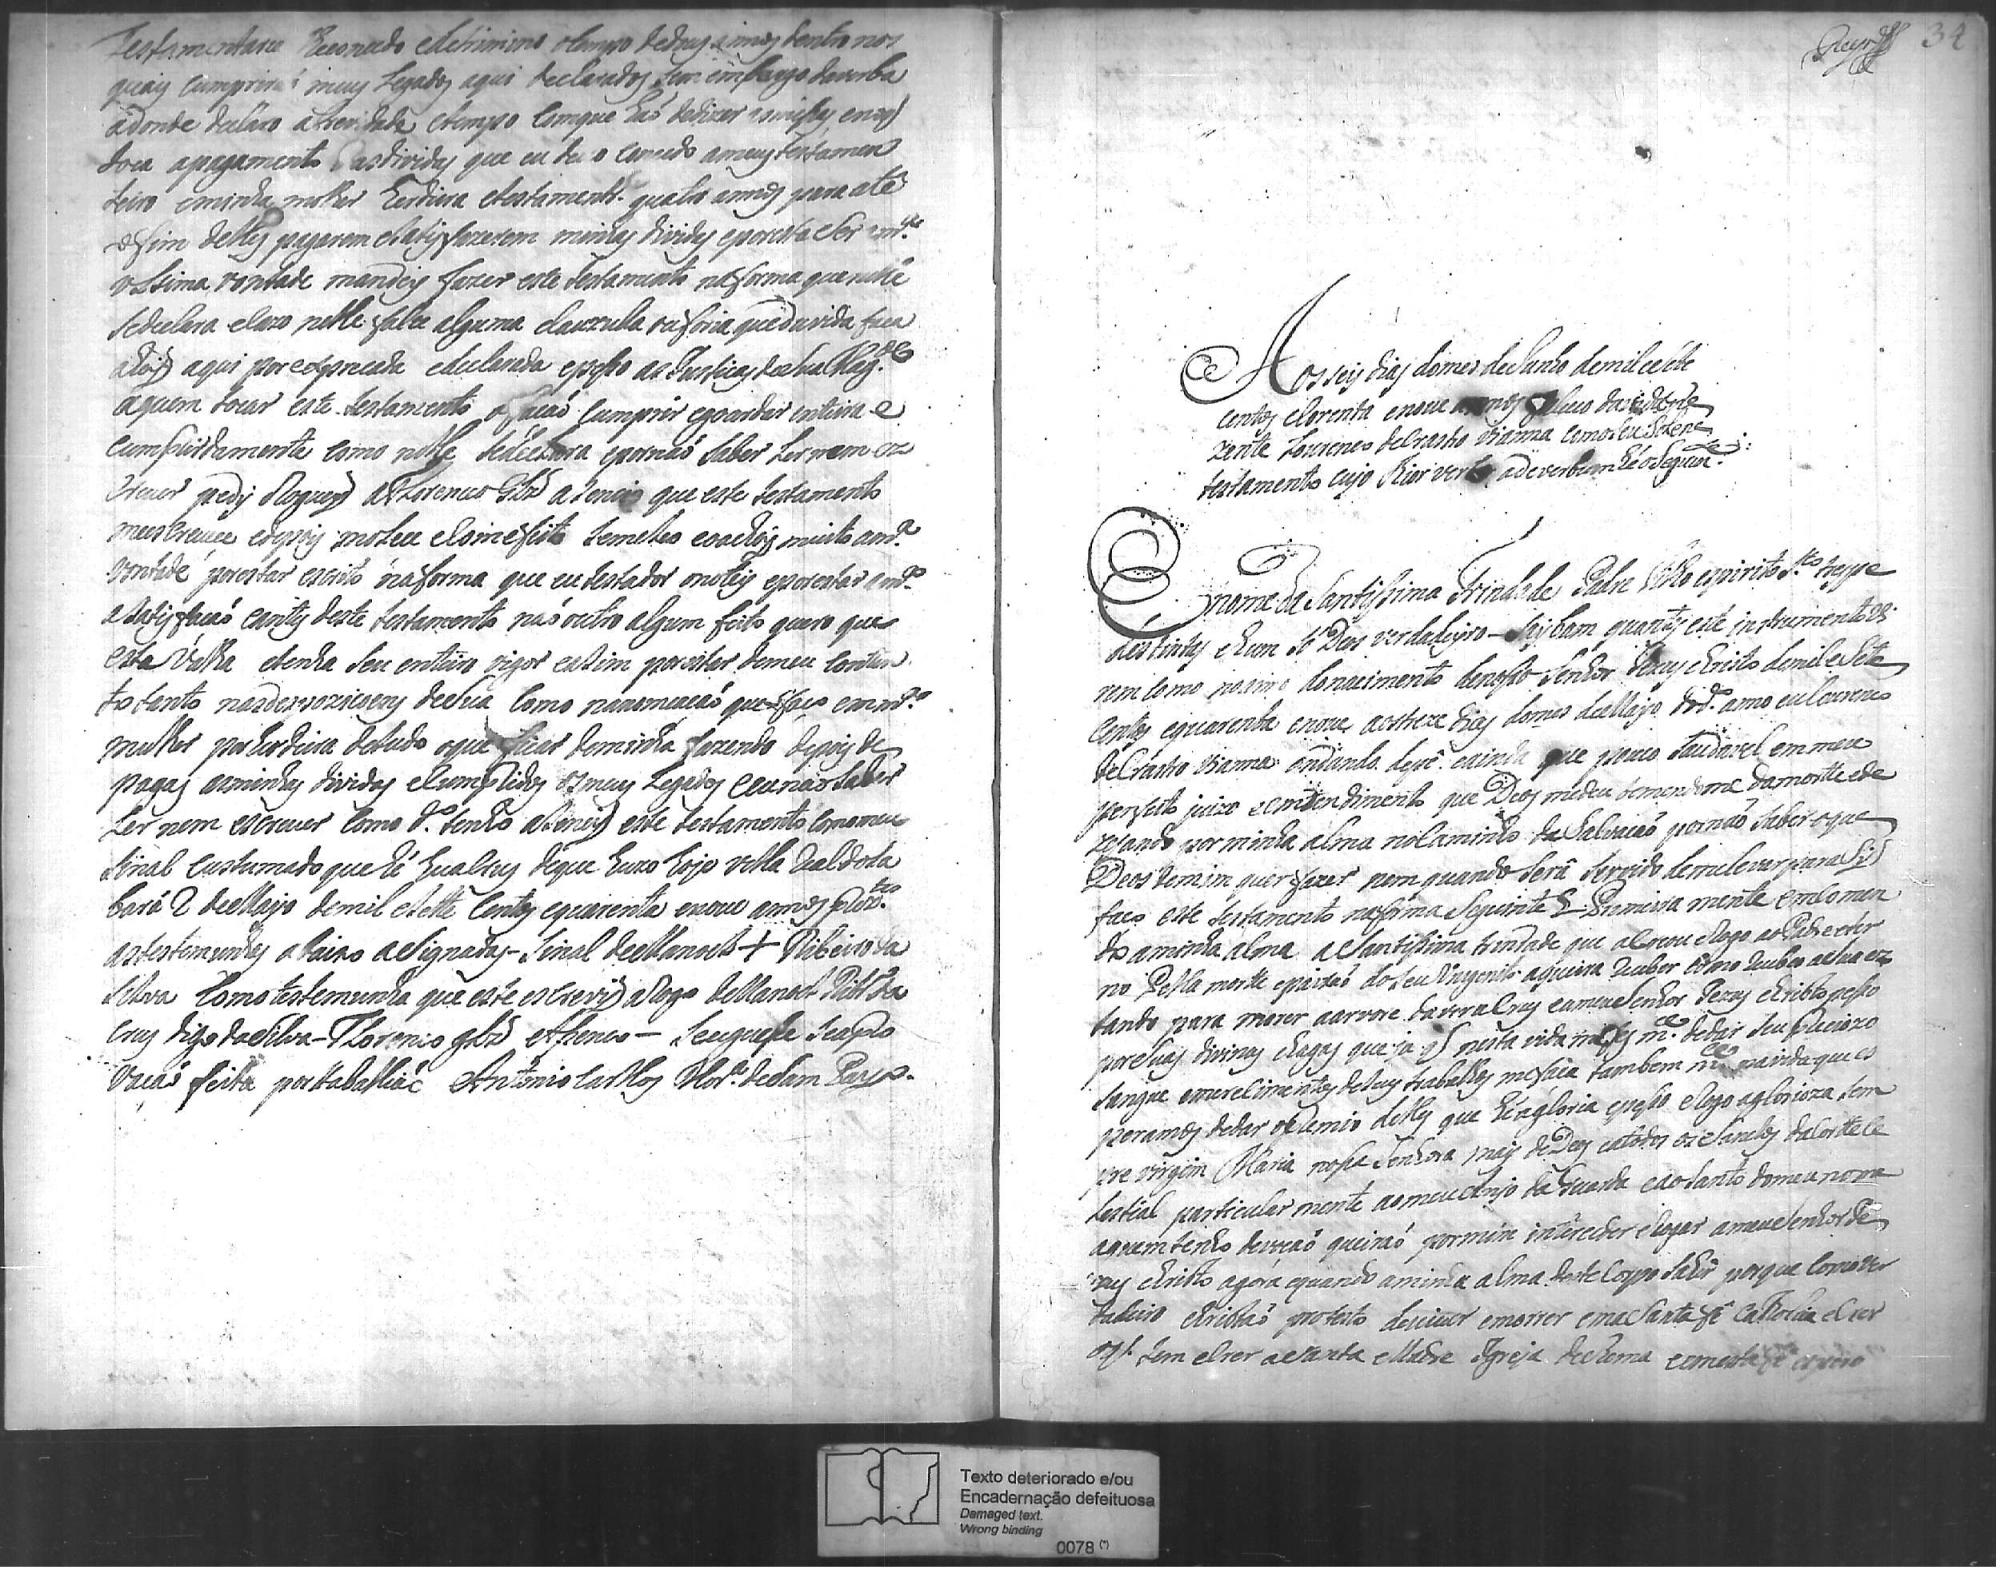 Testamentaria Reconcedo edetirmino otempo dedous annos dentro nos
quais cumprirá meus Legados aqui declarados sem embargo daverba
adonde declaro abrevidade etempo Comque hão dedizer asmissas enos
toca apagamento dasdividas que eu devo Concedo ameus testamen
teiro eminha molher Erdeira etestament.ª quatro annos para até
ofim delles pagarem eSatisfazerem minhas dividas eporesta Ser
ultima vontade mandey fazer este testamento naforma que nelle
Sedeclara eCazo nelle falte alguma clauzula ouforia queduvida faça
aqui por expreçada edeclarada epesso as Justiças deSua Mag.de
aquem tocar este testamento ofação Cumprir egoardar inteira e
Cumpridamente Como nelle Sedeclara epornão Saber Ler nem es
Crever pedy eRoguey aFlorencio Glz aSencio que este testamento
meescrevece edepois moLeu eComefeito Lemeleo eoachey muito a m.ª
Vontade porestar escrito naforma que eu testador onotey eporestar a m.ª
aSatisfação Contes deste testamento não outro algum feito quero que
esta Valha etenha Seu enteiro vigor easim porestar demeu Conten
to tanto nasdespoziçoens desua Como nanomeação quefaço em m.ª
mulher porherdeira detudo oque ficar deminha fazenda depois de
pagas asminhas dividas eCumpridos osmeus Legados eeunãoSaber
Ler nem escrever Como d.º tenho aSiney este testamento Comomeu
Sinal Custumado que hé hua Crus deque huzo hoje villa RealdoSa
bará 2 deMayo demil eSette Centos equarenta enove annos
astestemunhas abaixo aSignadas - Sinal deManoel + Ribeiro da
Silva Como testemunha que este escrevi aRogo deManoel Rib.ro da
Crus digo daSilva - Florencio glz aSencio - Seuguese Seapro
vação feita porttaballião Antonio Carllos
34
Aos seis dias domes deJunho demil eSete
Centos eCorenta enove annos faleceo davidaprez
zente Lourenço deCrasto Vianna Comoseu Solene
testamento cujo theor verbo adeverbum héoSeguinte:
Em nome da Santissima Trindade Padre Filho espirito S.to tres pe
destintas ehum Só Deos verdadeyro - Saybam quantos este instrumento vi
rem Como noanno donacimento denosso Senhor Jezus christo demil eSete
Centos equarenta enove aostreze dias domes deMayo dod.º anno eu Lourenco
deCrasto Vianna andando depé eainda que pouco Saudavel em meu
perfeito juizo eemtendimento que Deos medeu temendome damorte ede
zejando por minha alma noCaminho da Salvação pornão Saber oque
Deos demim quer fazer nem quando Será Servido demelevar para Sy
faço este testamento naforma Seguinte Primeira mente emComen
do aminha alma aSantissima trindade que aCreou eRogo ao Padre eter
no Pella morte epaixão doSeu Unigenito aqueira Reciber Como Recibeo aSua es
tando para morer aarvore daveraCrus eameuSenhor Jezus christo pesso
porsuas divinas chagas queja q nesta vida nosfes m.ce dedar Seu precioso
Sangue emerecimentos deSeus trabalhos mefaca tambem m.ce navida que es
peramos dedar opremio delles que héagloria epesso eRogo agloriosa Sem
pre virgem Maria nossa Senhora may deDeos eatodos os Santos daCortte Ce
lestial particular mente aomeu Anjo da Guarda eaoSanto domeu nome
aquem tenho devoção queirão por mim interceder eRogar ameuSenhor Je
zus christo agora equando aminha alma deste Corpo Sahir porque Comover
dadeiro christão protesto deviver emorrer emaSanta fé Catholica eCrer
oq tem eCrer aSanta Madre Igreja deRoma
Texto deteriorado e/ou
Encadernação defeituosa
Damaged text.
Wrong binding
0078 (*)